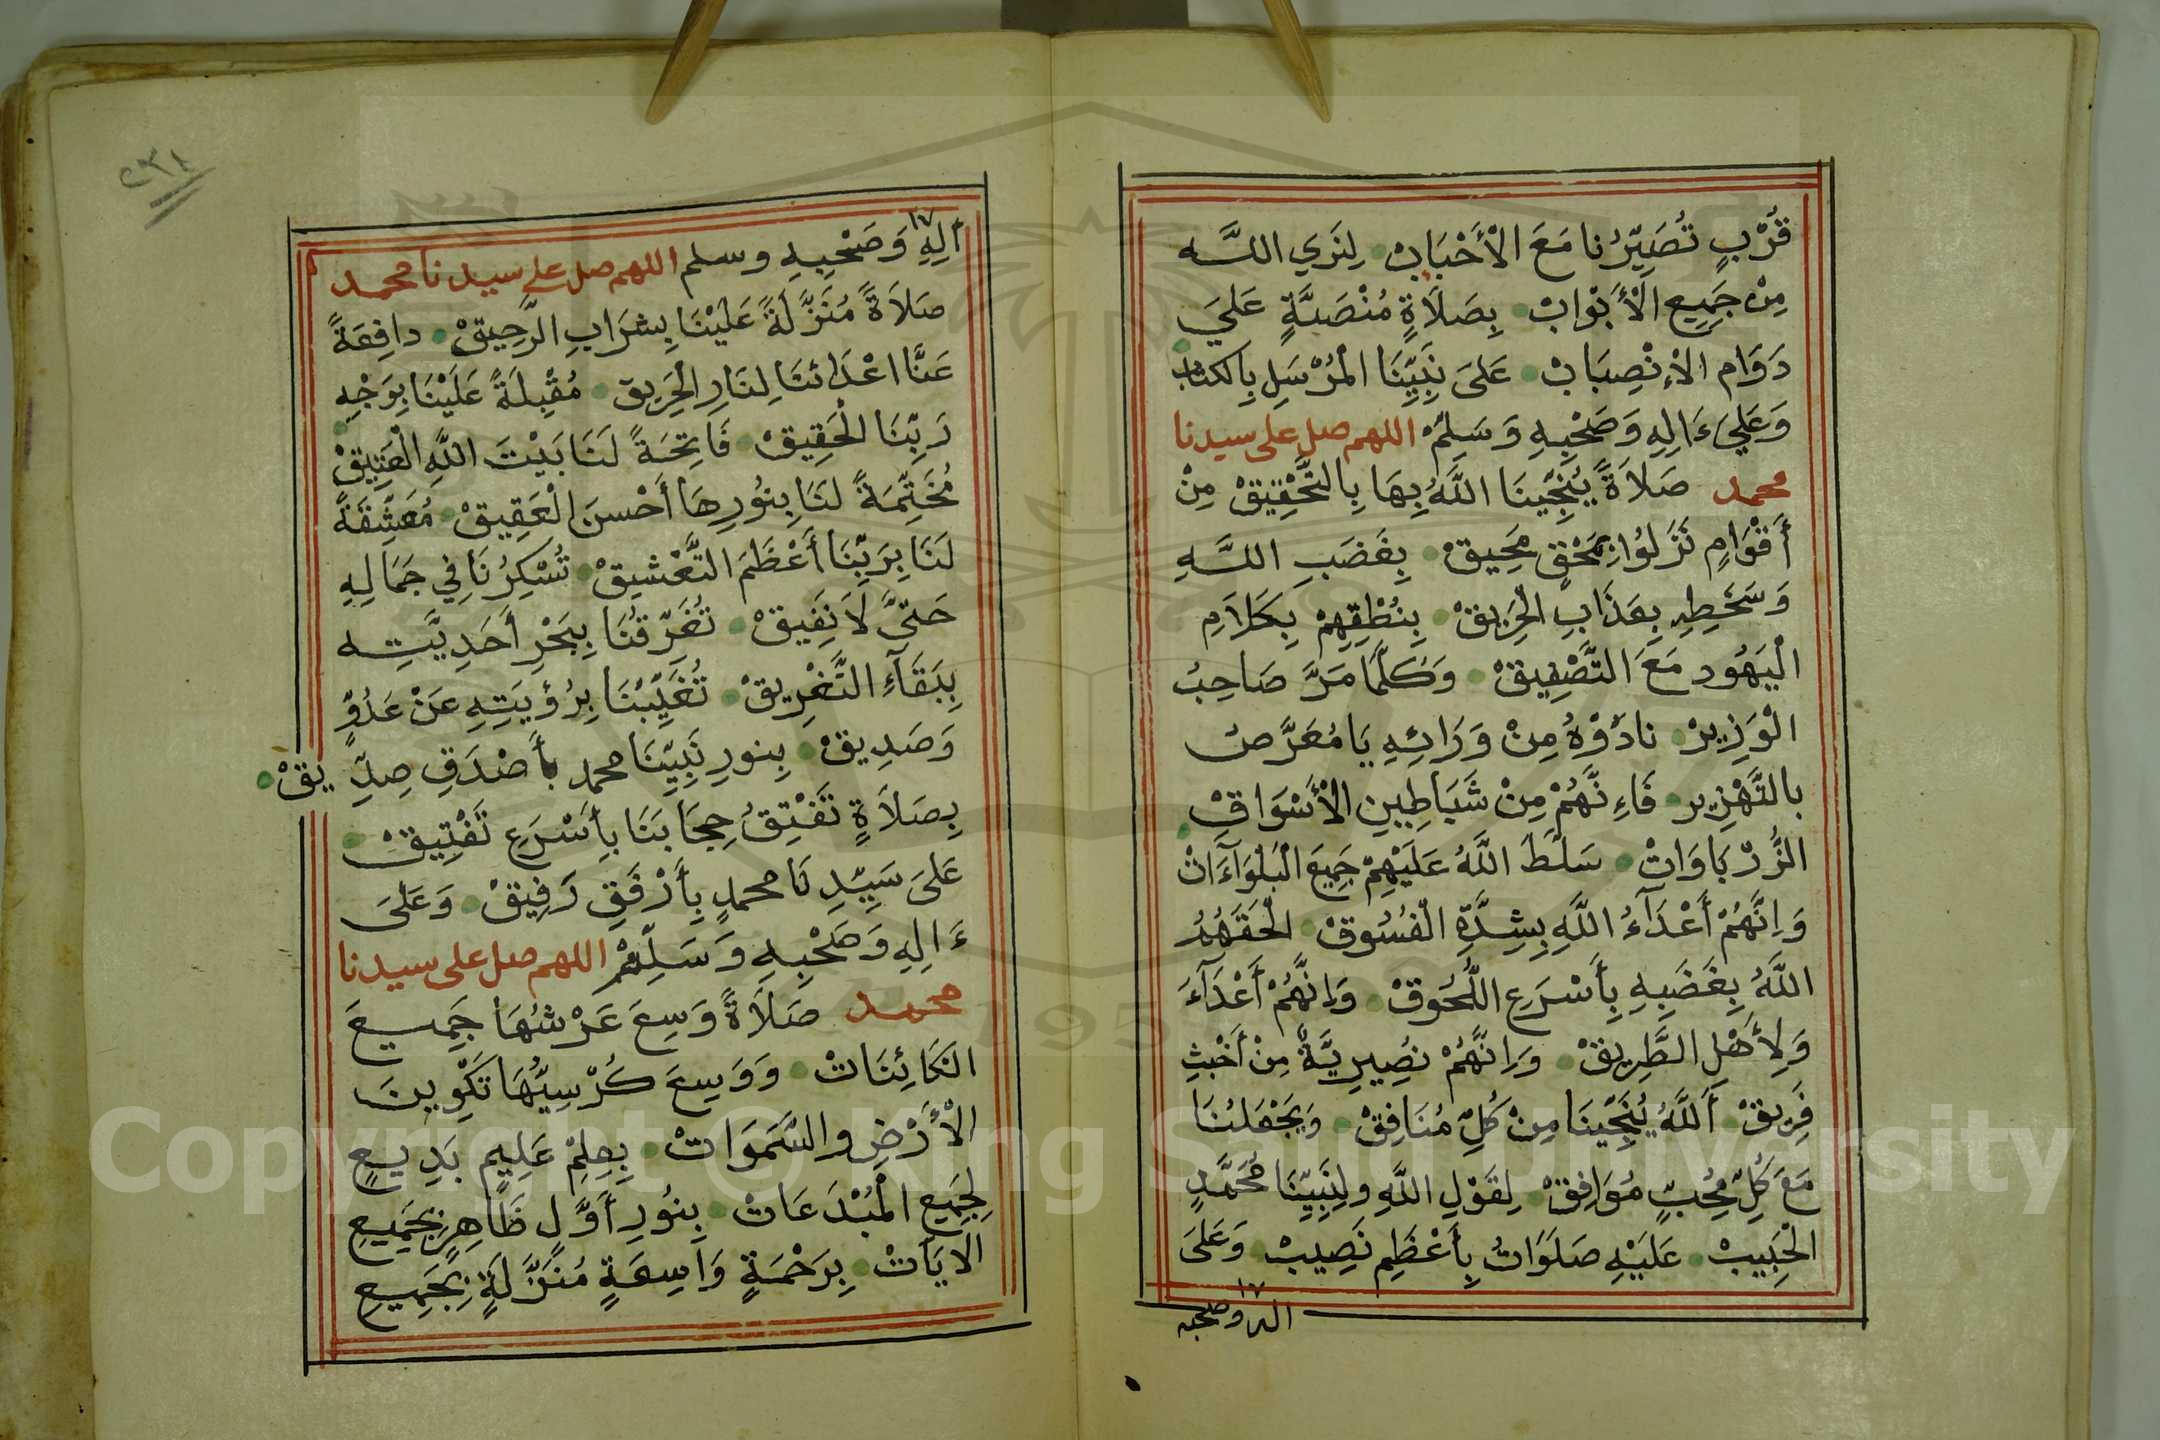 قُرْبٍ تُصَيِّرُنا مَعَ الْأَحْبَابْ لِنَرَي اللَّه
مِنْ جَمِيعِ الْأَبْوَابْ بِصَلَاةٍ مُنْصَبَّةٍ عَلَيَ
دَوَامِ الْاِنْصِبَابْ عَلَى نَبِيِّنَا الْمُرْسَلِ بِالكتاب
وَعَلَيَ ءَالِهِ وَصَحْبِهِ وَسَلِّمْ اللهم صل على سيدنا
محمد صَلَاةً يُنَجِّينَا اللَّهُ بِهَا بِالتَّحْقِيقْ مِنْ
أَقْوَامٍ نَزَلُوا بِمَحْقٍ مَحِيقْ بِغَضَبِ اللَّهِ
وَسَخَطِهِ بِعَذَابِ الْحَرِيقْ بِنُطْقِهِمْ بِكَلَامِ
الْيَهُودِ مَعَ التَّصْفِيقْ وَكُلَّمَا مَرَّ صَاحِبُ
الْوَزِيرْ نادَوْهُ مِنْ وَرَائِهِ يَا مُعَرَّصْ
بالتَّهْزِير فَاِنَّهُمْ مِنْ شَيَاطِينِ الْأَسْوَاقْ
الزُّرْبَاوَاتْ سَلَّطَ اللَّهُ عَلَيْهِمْ جَمِيعَ الْبَلْوَآءَاتْ
وَاِنَّهُمْ أَعْدَآءُ اللَّهِ بِشِدَّةِ الْفُسُوقْ اَلْحَقَهُمُ
اللَّهُ بِغَضَبِهِ بِأَسْرَعِ اللُّحُوقْ وَاِنَّهُمْ أَعْدَآءَ
وَلِأَهْلِ الطَّرِيقْ وَاِنَّهُمْ نُصِيرِيَّةٌ مِنْ أَخْبَثِ
فَرِيقْ اَللَّهُ يُنَجِّينَا مِنْ كُلِّ مُنَافِقْ وَيَجْعَلُنَا
مَعَ كُلِّ مُحِبٍّ مُوَافِقْ لِقَوْلِ اللَّهِ ولِنَبِيِّنَا مُحَمَّدٍ
الْحَبِيبْ عَلَيْهِ صَلَوَاتُ بِأَعْظَمِ نَصِيبْ وَعَلَى
١٧
اله وصحبه
٢٣١
١٧
اَلِهِ وَصَحْبِهِ وسلم اللهم صل على سيدنا محمد
صَلَاةً مُنَزَّلَةً عَلَيْنَا بِشرَابِ الرَّحِيقْ دافِعَةً
عَنَّا اعْدَائنَا لِنَارِ الْحَرِيق مُقْبِلَةً عَلَيْنَا بِوَجْهِ
رَبِّنَا الْحَقِيقْ فَاتِحَةً لَنَا بَيْتَ اللَّهِ الْعَتِيقْ
مُخَتِّمَةً لَنَا بِنُورِهَا أَحْسنَ الْعَقِيقْ مُعَشِّقَةً
لَنَا بِرَبِّنَا أَعْظَمَ التَّعْشِيقْ تُسْكِرُنَا فِي جَمَالِهِ
حَتَّى لَا نَفِيقْ تُغَرِّقُنَا بِبَحْرِ أَحَدِيَّتِه
بِبَقَآءِ التَّغْرِيقْ تُغَيِّبْنَا بِرُؤيَتِهِ عَنْ عَدُوٍّ
وَصَدِيقْ بِنورِ نَبِيِّنَا محمد بأَصْدَقِ صِدِّيقْ
بِصَلَاةٍ تَفْتِقُ حِجَابَنَا بِأَسْرَعِ تَفْتِيقْ
عَلَى سَيِّدِنَا محمدٍ بِأَرْفَقِ رَفِيقْ وَعَلَى
ءَالِهِ وَصَحْبِهِ وَسَلِّمْ اللهم صل على سيدنا
محمد صَلَاةً وَسِعَ عَرْشُهَا جَمِيعَ
الكَائِنَاتْ وَوَسِعَ كُرْسِيُّهَا تَكْوِينَ
الْأَرْضِ والسَّمَوَاتْ بِعِلْمِ عَلِيمٍ بَدِيعٍ
لِجَمِيعِ الْمُبْدَعَاتْ بِنُورِ أَوَّلٍ ظَاهِرٍ بِجَمِيعِ
الْايَاتْ بِرَحْمَةٍ وَاسِعَةٍ مُنَزَّلَةٍ بِجَمِيعِ
Copyright © King Saud University
1957